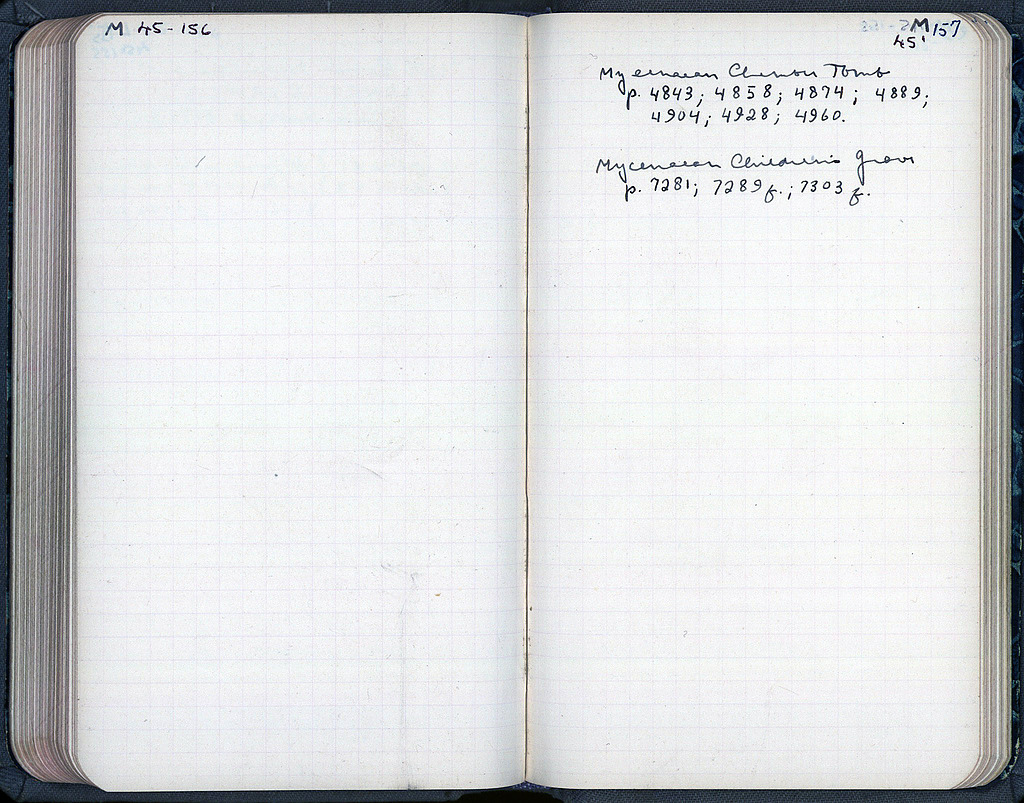 M 45-156
M 157
45'
Mycenaean Chamber Tomb
p. 4843; 4858; 4874; 4889;
4904; 4928; 4960.
Mycenaean Children's Grave
p. 7281; 7289 f.; 7303 f.